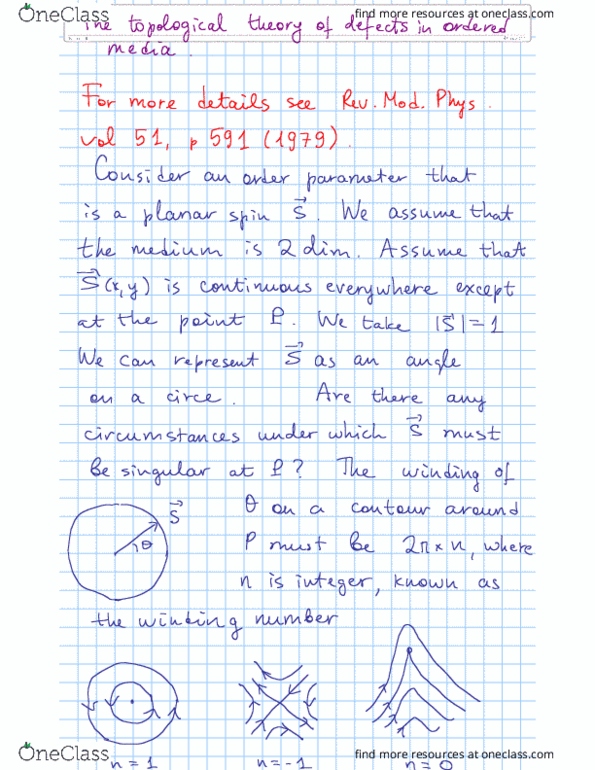 OneClass
find more resources at oneclass.com
The topological theory of defects in ordered
media.
For more details see Rev. Mod. Phys.
vol 51, p 591 (1979).
Consider an order parameter that
is a planar spin S. We assume that
the medium is 2 dim. Assume that
S(x,y) is continuous everywhere except
at the point P. We take |S|=1
We can represent S as an angle
on a circe. Are there any
circumstances under which S must
be singular at P? The winding of
θ on a contour around
P must be 2π×n, where
n is integer, known as
the winding number
S
θ
n = 1
n = -1
n = 0
OneClass
find more resources at oneclass.com